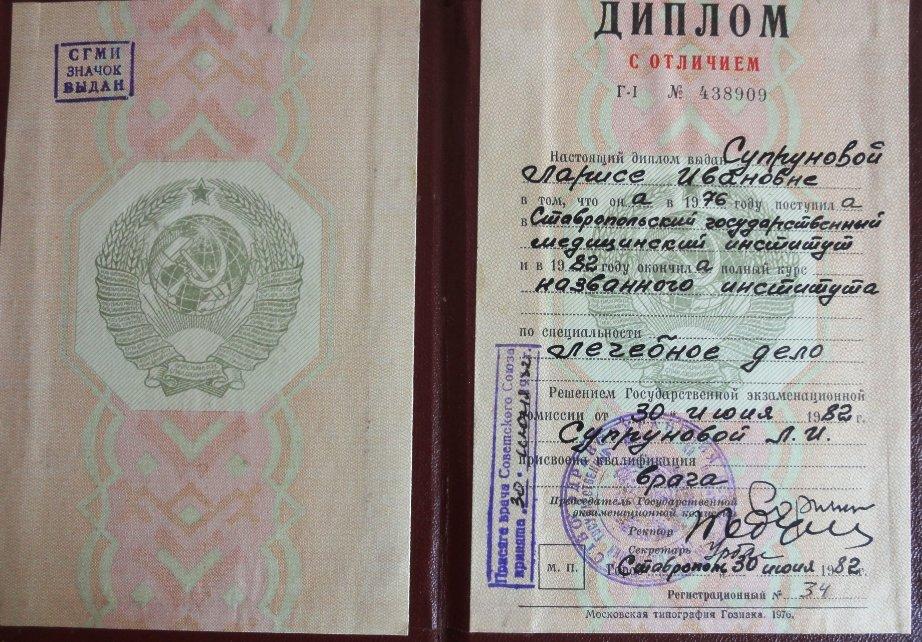 СГМИ
ЗНАЧОК
ВЫДАН
ДИПЛОМ
С ОТЛИЧИЕМ
Г-I № 438909
Настоящий диплом выдан Супруновой
Ларисе Ивановне
в том, что он а в 1976 году поступил а
в Ставропольский государственный
медицинский институт
и в 1982 году окончил а полный курс
названного института
по специальности
лечебное дело
Решением Государственной экзаменационной
комиссии от 30 июня 1982 г.
Супруновой Л.И.
присвоена квалификация
врача
Председатель Государственной
экзаменационной комиссии
Ректор
Секретарь
М. П. Город Ставрополь 30 июня 1982 г.
Регистрационный № 34
Московская типография Гознака. 1976.
Присяга врача Советского Союза
принята "30" июня 1982 г.